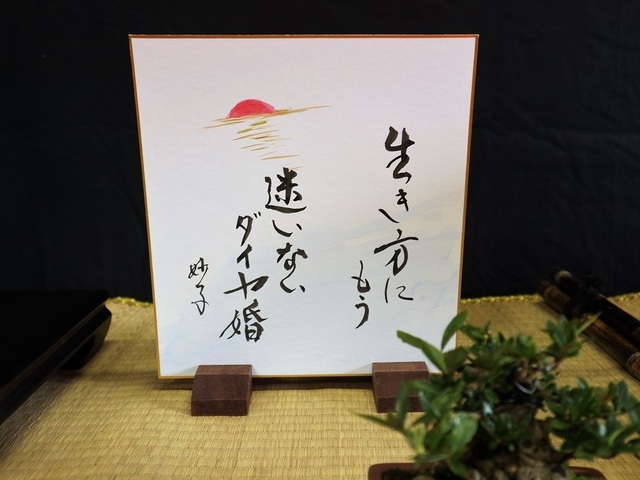 生き方に
もう
迷いない
ダイヤ婚
妙子